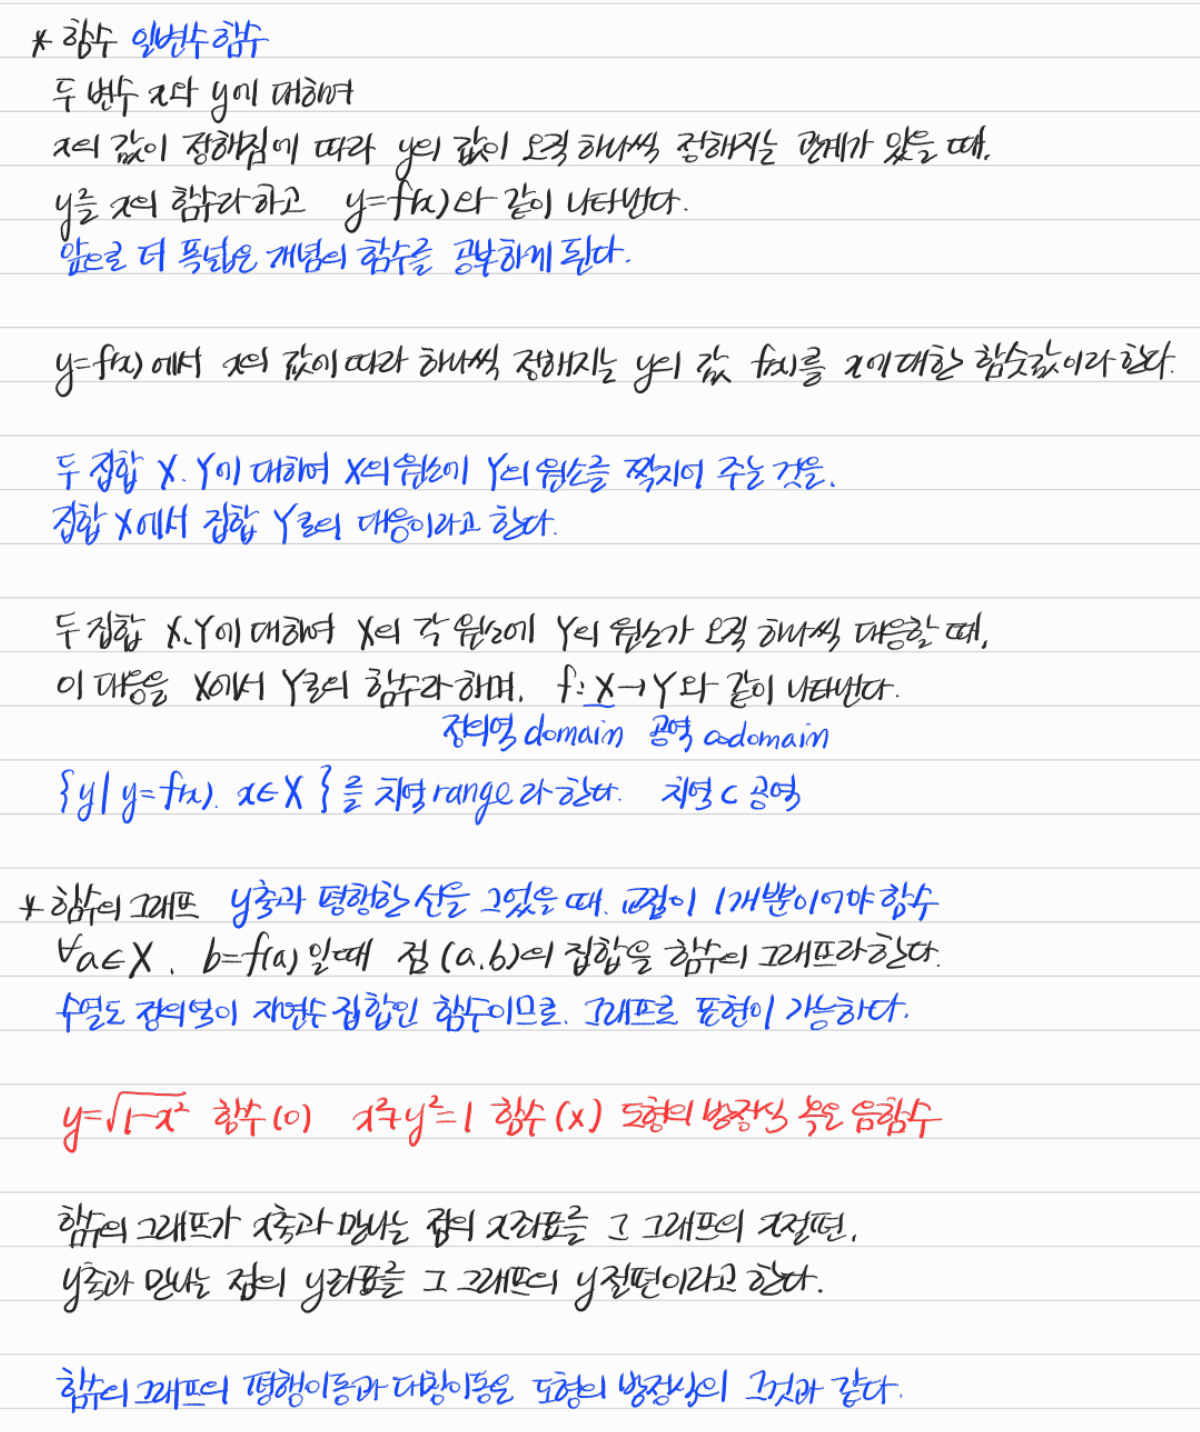 * 함수 일변수함수
두 변수 x와 y에 대하여
x의 값이 정해짐에 따라 y의 값이 오직 하나씩 정해지는 관계가 있을 때,
y를 x의 함수라하고 y=f(x)와 같이 나타낸다.
앞으로 더 폭넓은 개념의 함수를 공부하게 된다.
y=f(x)에서 x의 값에 따라 하나씩 정해지는 y의 값 f(x)를 x에 대한 함숫값이라 한다.
두 집합 X, Y에 대하여 X의 원소에 Y의 원소를 짝지어 주는 것을,
집합 X에서 집합 Y로의 대응이라고 한다.
두 집합 X, Y에 대하여 X의 각 원소에 Y의 원소가 오직 하나씩 대응할 때,
이 대응을 X에서 Y로의 함수라 하며, f: X→Y와 같이 나타낸다.
정의역 domain 공역 codomain
{y | y=f(x), x∈X}를 치역 range라 한다. 치역 ⊂ 공역
* 함수의 그래프 y축과 평행한 선을 그었을 때, 교점이 1개뿐이어야 함수
∀a∈X, b=f(a)일때 점 (a,b)의 집합을 함수의 그래프라한다.
수열도 정의역이 자연수 집합인 함수이므로, 그래프로 표현이 가능하다.
y=√1-x² 함수(O) x²+y²=1 함수(X) 도형의 방정식 혹은 음함수
함수의 그래프가 x축과 만나는 점의 x좌표를 그 그래프의 x절편,
y축과 만나는 점의 y좌표를 그 그래프의 y절편이라고 한다.
함수의 그래프의 평행이동과 대칭이동은 도형의 방정식의 그것과 같다.